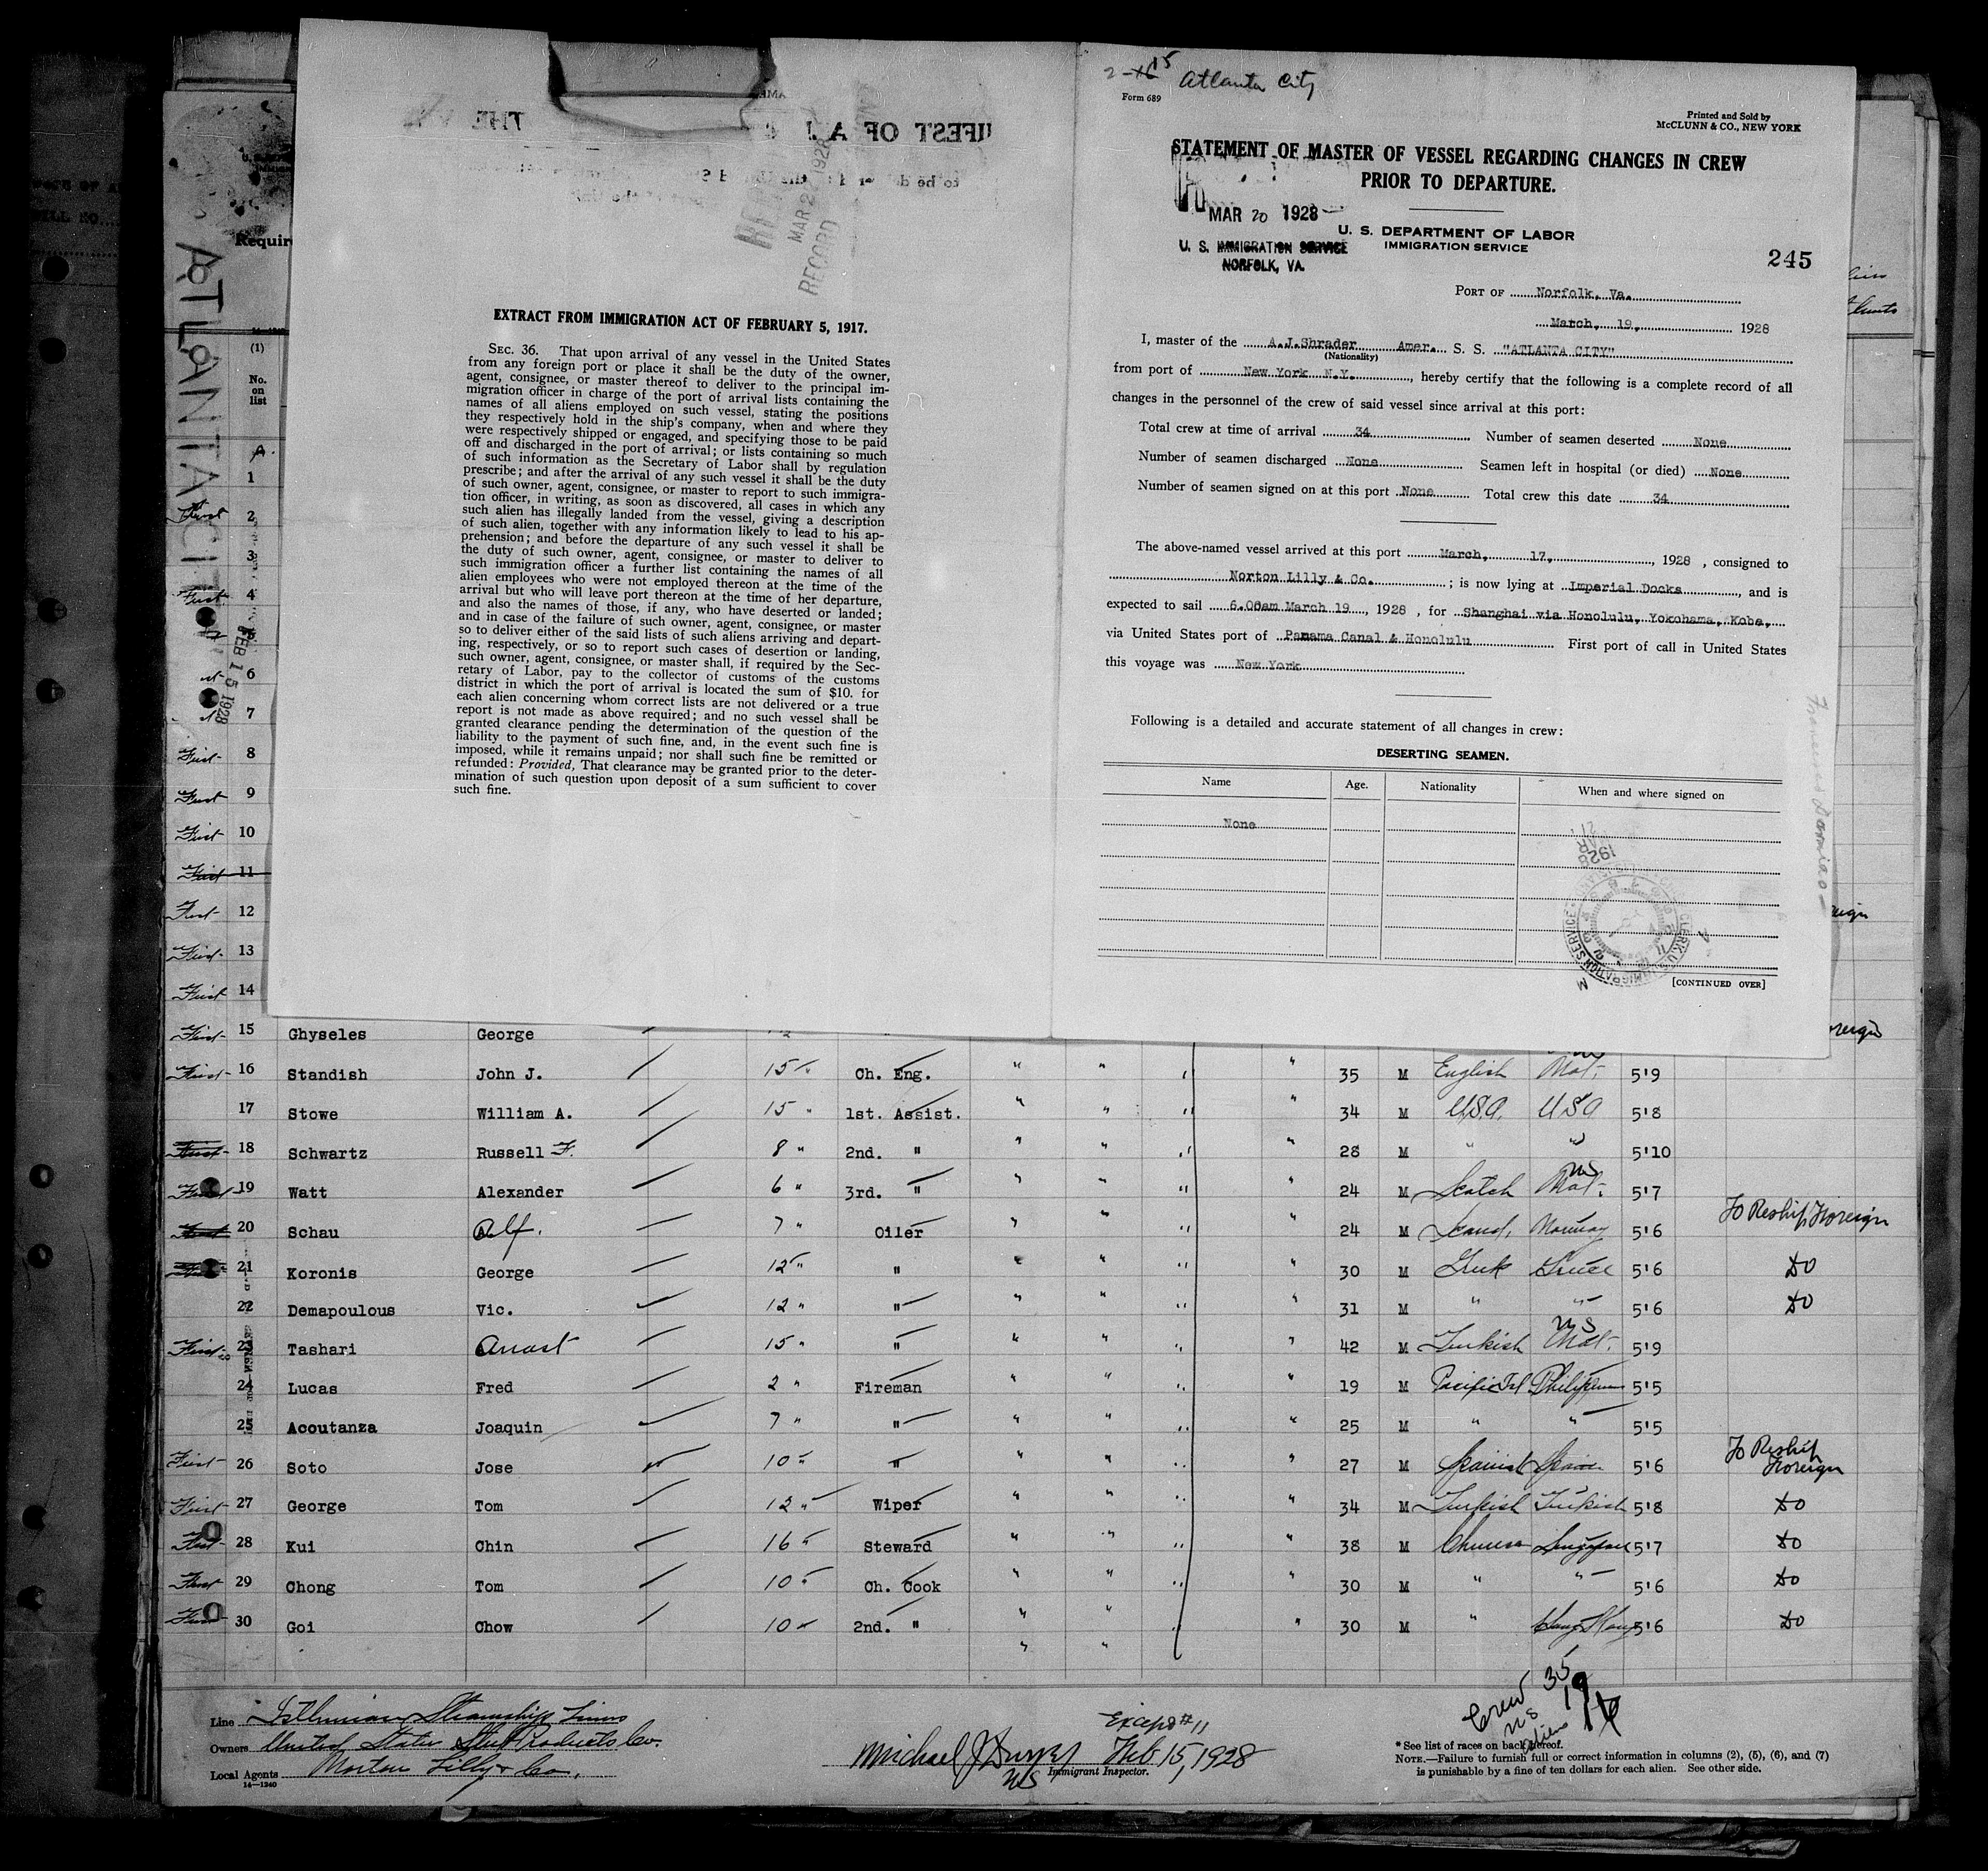 EXTRACT FROM IMMIGRATION ACT OF FEBRUARY 5, 1917.
SEC. 36. That upon arrival of any vessel in the United States
from any foreign port or place it shall be the duty of the owner,
agent, consignee, or master thereof to deliver to the principal im-
migration officer in charge of the port of arrival lists containing the
names of all aliens employed on such vessel, stating the positions
they respectively hold in the ship's company, when and where they
were respectively shipped or engaged, and specifying those to be paid
off and discharged in the port of arrival; or lists containing so much
of such information as the Secretary of Labor shall by regulation
prescribe; and after the arrival of any such vessel it shall be the duty
of such owner, agent, consignee, or master to report to such immigra-
tion officer, in writing, as soon as discovered, all cases in which any
such alien has illegally landed from the vessel, giving a description
of such alien, together with any information likely to lead to his ap-
prehension; and before the departure of any such vessel it shall be
the duty of such owner, agent, consignee, or master to deliver to
such immigration officer a further list containing the names of all
alien employees who were not employed thereon at the time of the
arrival but who will leave port thereon at the time of her departure,
and also the names of those, if any, who have deserted or landed;
and in case of the failure of such owner, agent, consignee, or master
so to deliver either of the said lists of such aliens arriving and depart-
ing, respectively, or so to report such cases of desertion or landing,
such owner, agent, consignee, or master shall, if required by the Sec-
retary of Labor, pay to the collector of customs of the customs
district in which the port of arrival is located the sum of $10. for
each alien concerning whom correct lists are not delivered or a true
report is not made as above required; and no such vessel shall be
granted clearance pending the determination of the question of the
liability to the payment of such fine, and, in the event such fine is
imposed, while it remains unpaid; nor shall such fine be remitted or
refunded: Provided, That clearance may be granted prior to the deter-
mination of such question upon deposit of a sum sufficient to cover
such fine.
Atlanta City
Form 689
Printed and Sold by
McCLUNN & CO., NEW YORK
STATEMENT OF MASTER OF VESSEL REGARDING CHANGES IN CREW
PRIOR TO DEPARTURE.
MAR 20 1928
U. S. DEPARTMENT OF LABOR
IMMIGRATION SERVICE
U. S. IMMIGRATION SERVICE
NORFOLK, VA.
245
PORT OF Norfolk, Va.
March, 19, 1928
I, master of the A.J.Shrader Amer. S. S. "ATLANTA CITY"
(Nationality)
from port of New York N.Y., hereby certify that the following is a complete record of all
changes in the personnel of the crew of said vessel since arrival at this port:
Total crew at time of arrival 34 Number of seamen deserted None
Number of seamen discharged None Seamen left in hospital (or died) None
Number of seamen signed on at this port None Total crew this date 34
The above-named vessel arrived at this port March, 17, 1928, consigned to
Norton Lilly & Co.; is now lying at Imperial Docks, and is
expected to sail 6.00am March 19, 1928, for Shanghai via Honolulu, Yokohama, Kobe,
via United States port of Panama Canal & Honolulu First port of call in United States
this voyage was New York
Following is a detailed and accurate statement of all changes in crew:
DESERTING SEAMEN.
Name Age. Nationality When and where signed on
None
[CONTINUED OVER]
ATLANTA CITY
FEB 15 1928
MAR 2 1928
RECORD
(1)
No.
on
list
1
First 2
3
First 4
5
6
7
First 8
First 9
First 10
First 11
First 12
First 13
First 14
First 15 Ghyseles George
First 16 Standish John J. 15 " Ch. Eng. " " " " 35 M English Nat. 5'9
17 Stowe William A. 15 " 1st. Assist. " " " " 34 M U.S.A. USA 5'8
First 18 Schwartz Russell F. 8 " 2nd. " " " " " 28 M " " 5'10
First 19 Watt Alexander 6 " 3rd. " " " " " 24 M Scotch US Nat. 5'7
First 20 Schau Alf. 7 " Oiler " " " " 24 M Scand. Norway 5'6 To Reship Foreign
First 21 Koronis George 12 " " " " " " 30 M Greek Greece 5'6 DO
22 Demapoulous Vic. 12 " " " " " " 31 M " " 5'6 DO
First 23 Tashari Anast 15 " " " " " " 42 M Turkish US Nat. 5'9
24 Lucas Fred 2 " Fireman " " " " 19 M Pacific Isl Philippines 5'5
25 Acoutanza Joaquin 7 " " " " " " 25 M " " 5'5
First 26 Soto Jose 10 " " " " " " 27 M Spanish Spain 5'6 To Reship Foreign
First 27 George Tom 12 " Wiper " " " " 34 M Turkish Turkish 5'8 DO
First 28 Kui Chin 16 " Steward " " " " 38 M Chinese Singapore 5'7 DO
First 29 Chong Tom 10 " Ch. Cook " " " " 30 M " " 5'6 DO
First 30 Goi Chow 10 " 2nd. " " " " " 30 M " Hong Kong 5'6 DO
Crew 35
US 19
Aliens 16
Line Isthmian Steamship Lines
Owners United States Steel Products Co.
Local Agents Norton Lilly & Co.
14—1240
Except #11
Feb 15, 1928
Immigrant Inspector.
* See list of races on back hereof.
NOTE.—Failure to furnish full or correct information in columns (2), (5), (6), and (7)
is punishable by a fine of ten dollars for each alien. See other side.